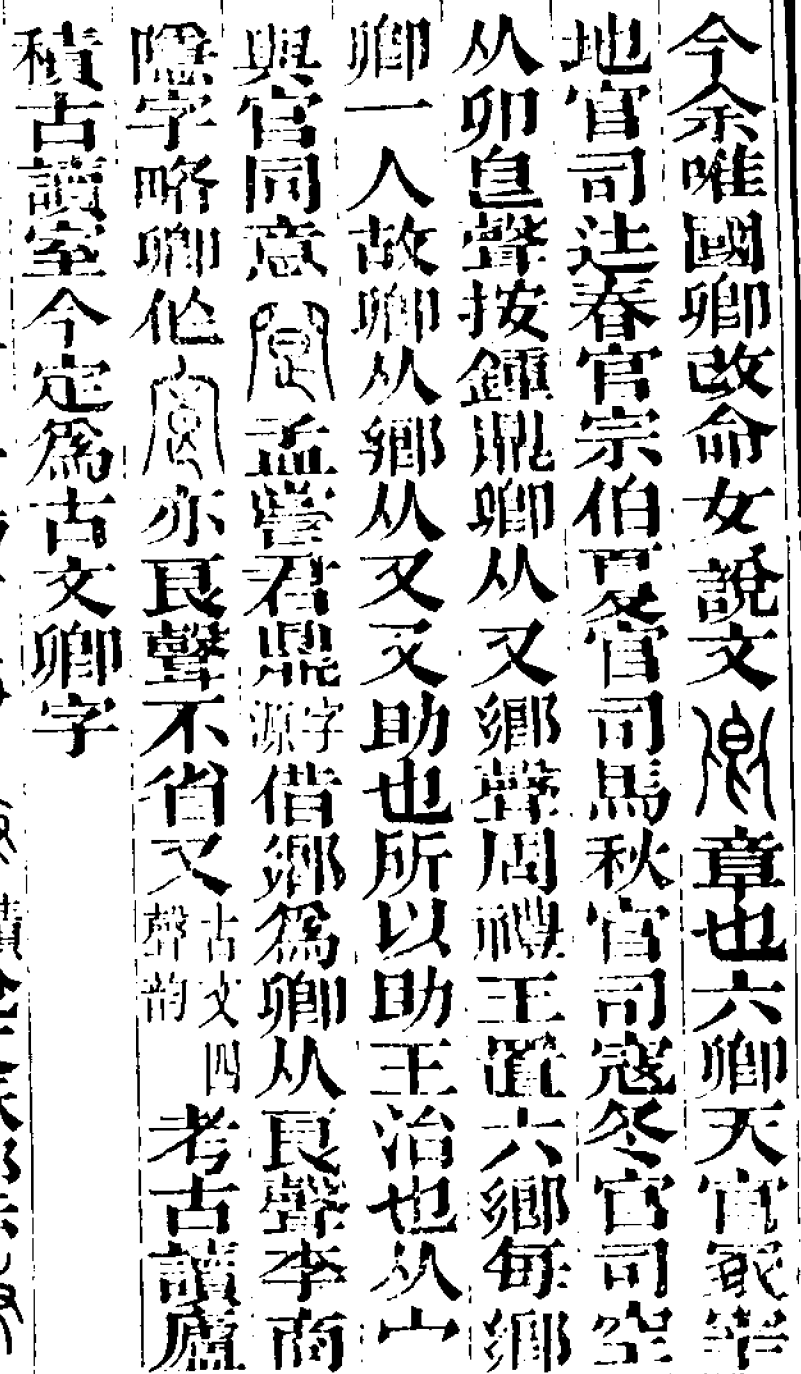 今余唯國卿改命女說文章也六卿天官冢宰
地官司辻春官宗伯夏官司馬秋官司寇冬官司空
从卯皀聲按鍾鼎卿从又鄉聲周禮王置六鄉每鄉
卿一人故卿从鄉从又又助也所以助王治也从宀
與官同意孟嘗君鼎字源偕鄉爲卿从䇏聲李商
隱字略卿作亦䇏聲不省又古文四聲韵考古讀廬
積古讀室今定爲古文卿字